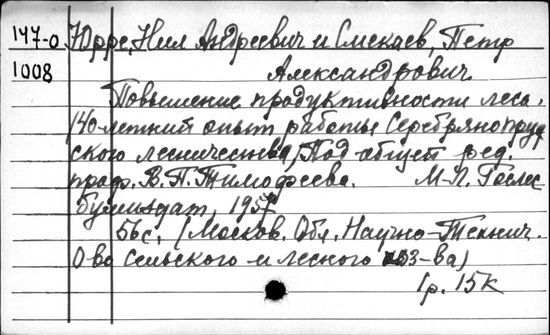 147-о Юрре, Нил Андреевич и Смекаев, Петр
1008 Александрович.
Повышение продуктивности леса.
/40-летний опыт работы Серебрянопруд
ского лесничества/Под общей ред.
проф. В. П. Тимофеева. М-Л. Гослес
бумиздат, 1957
56с. (Москов. Обл. Научно-Технич.
О-во сельского и лесного хоз-ва)
1р. 15к